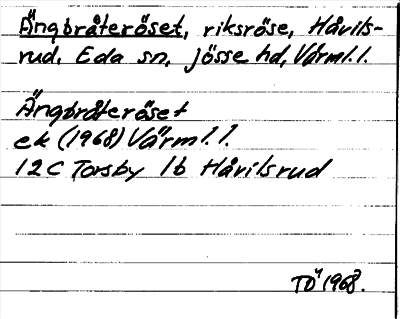 Ängbråteröset, riksröse, Håvils-
rud. Eda sn, Jösse hd, Värml. l.
Ängbråteröset
ek (1968) Värml. l.
12 C Torsby 1b Håvilsrud
TÖ 1968.